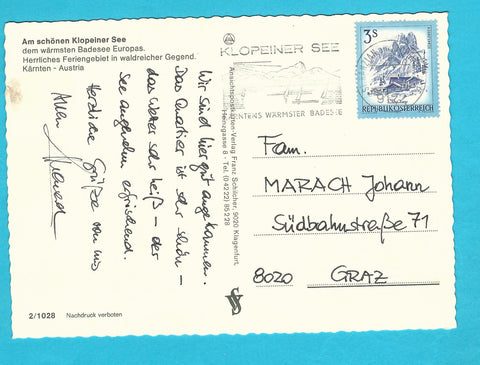 Am schönen Klopeiner See
dem wärmsten Badesee Europas.
Herrliches Feriengebiet in waldreicher Gegend.
Kärnten - Austria
Wir sind hier gut angekommen.
Das Quartier ist sehr schön –
das Wetter sehr heiß – der
See angenehm erfrischend.
Herzliche Grüße von uns
Allen
2/1028 Nachdruck verboten
Ansichtspostkarten-Verlag Franz Schilcher, 9020 Klagenfurt
Heinzgasse 8 - Tel. (04222) 85228
KLOPEINER SEE
KÄRNTENS WÄRMSTER BADESEE
3S
REPUBLIK ÖSTERREICH
Fam.
MARACH Johann
Südbahnstraße 71
8020 GRAZ